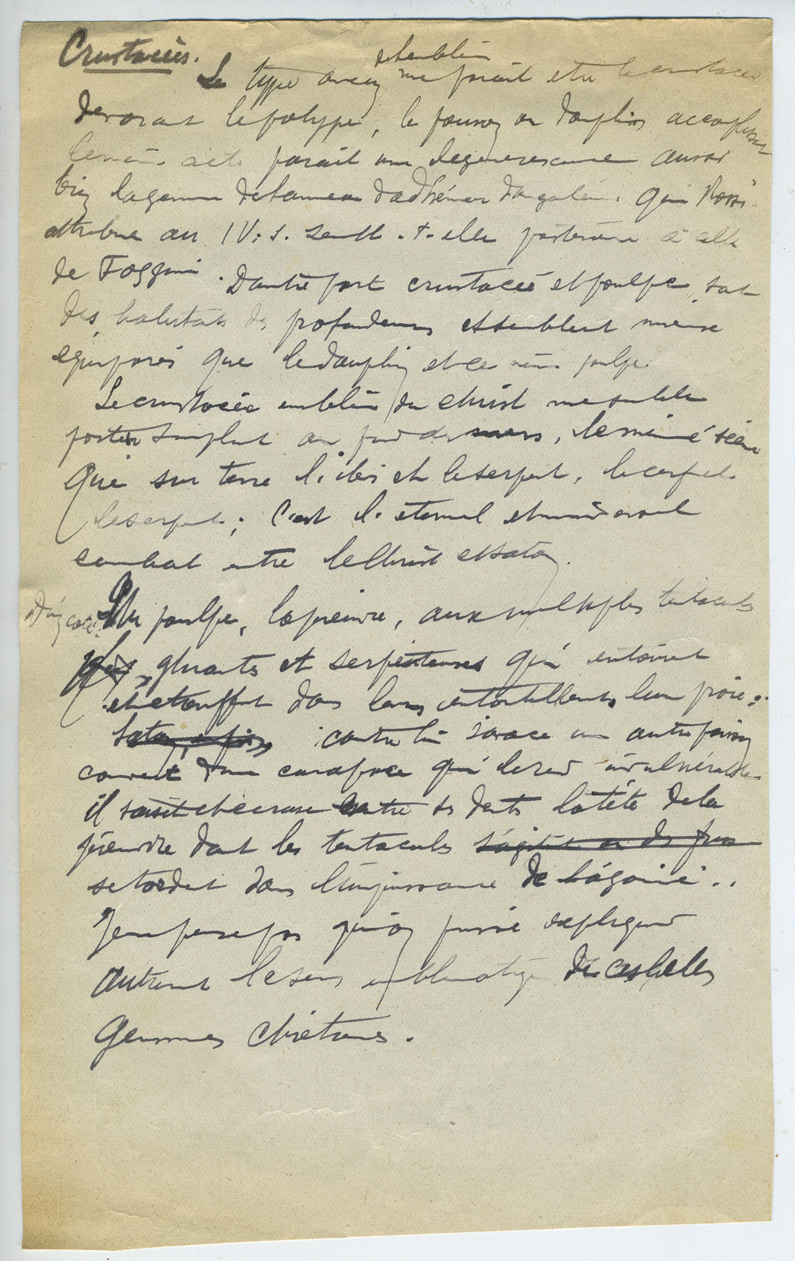 Crustacés.
emblème
Le type ancien me parait etre le crustacé
devorant le polype, le poisson ou dauphin accomplissant
le même acte parait une degenerescence aussi
bien la gemme de l'anneau d'Adhémar
attribue au IV. s. semble -t- elle posterieure à celle
de Foggini. D'autre part crustacé et poulpe sont
des habitants des profondeurs et semblent mieux
que le dauphin et ce même poulpe
Le crustacé emblème du Christ me semble
porter simplement au fond des mers, le même
que sur terre l'ibis et le serpent, le cerf et
le serpent; c'est l'eternel et universel
combat entre le Christ et Satan.
D'un coté Un poulpe, la pieuvre, aux multiples tentacules
gluants et serpenteuses qui entourent
et etouffent dans leurs entortillements leur proie:
Satan, contre lui s'avance un autre poisson
couvert d'une carapace qui le rend invulnérable
il saisit et ecrase entre ses dents la tête de la
pieuvre dont les tentacules s'agitent
se tordent dans l'impuissance de l'agonie..
Je ne pense pas qu'on puisse expliquer
autrement le sens emblematique de ces belles
gemmes chrétiennes.